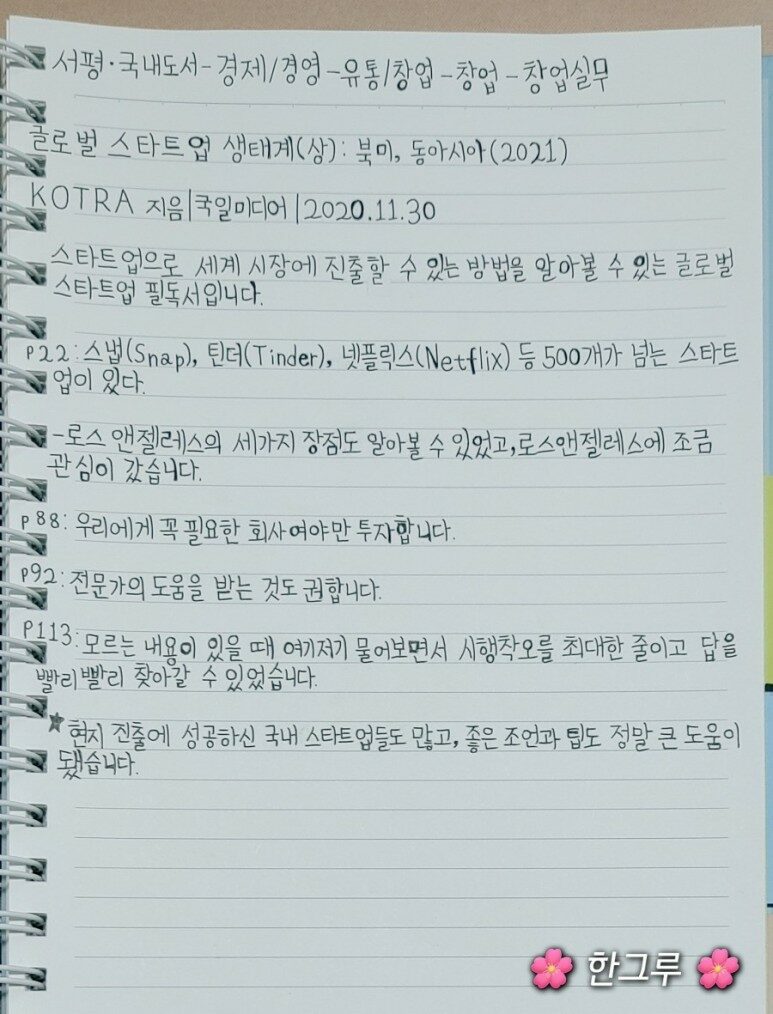 서평·국내도서-경제/경영-유통/창업-창업-창업실무
글로벌 스타트업 생태계(상): 북미, 동아시아(2021)
KOTRA 지음|국일미디어|2020.11.30
스타트업으로 세계 시장에 진출할 수 있는 방법을 알아볼 수 있는 글로벌
스타트업 필독서입니다.
p22: 스냅(Snap), 틴더(Tinder), 넷플릭스(Netflix) 등 500개가 넘는 스타트
업이 있다.
-로스 앤젤레스의 세가지 장점도 알아볼 수 있었고,로스앤젤레스에 조금
관심이 갔습니다.
p88: 우리에게 꼭 필요한 회사여야만 투자합니다.
p92: 전문가의 도움을 받는 것도 권합니다.
P113: 모르는 내용이 있을 때 여기저기 물어보면서 시행착오를 최대한 줄이고 답을
빨리빨리 찾아갈 수 있었습니다.
★현지 진출에 성공하신 국내 스타트업들도 많고, 좋은 조언과 팁도 정말 큰 도움이
됐습니다.
🌸 한그루 🌸